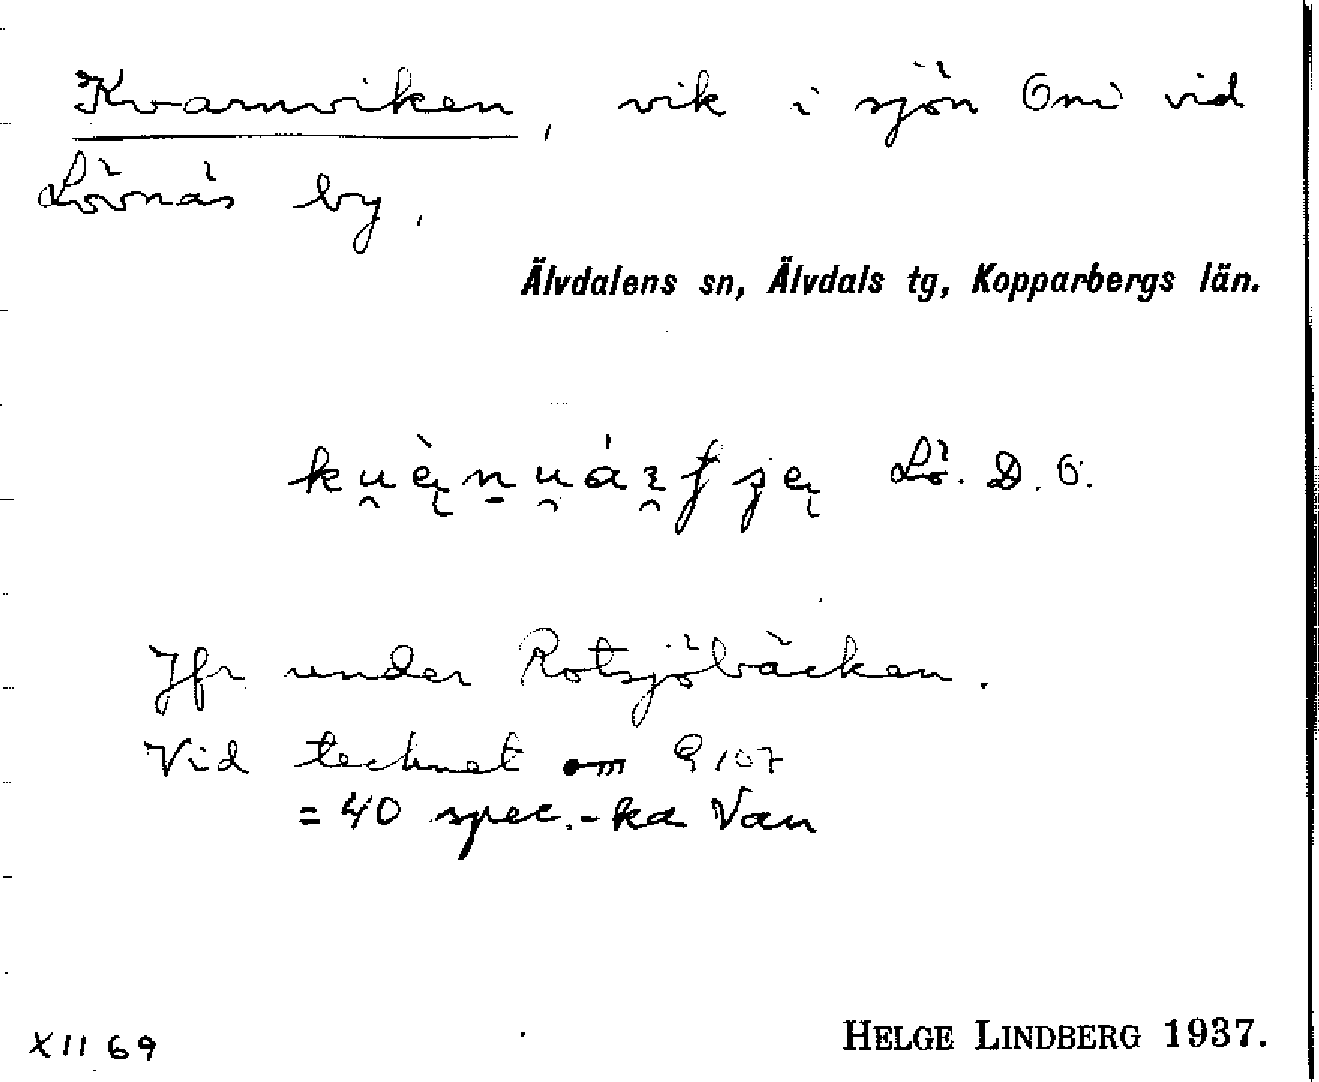 Kvarnviken, vik i sjön Om vid
Lövnäs by.
Älvdalens sn, Älvdals tg, Kopparbergs län.
Lö. D. O.
Jfr under Rotsjöbäcken.
Vid tecknet 9107
= 40 spec.-ka Van
XII 69
HELGE LINDBERG 1937.